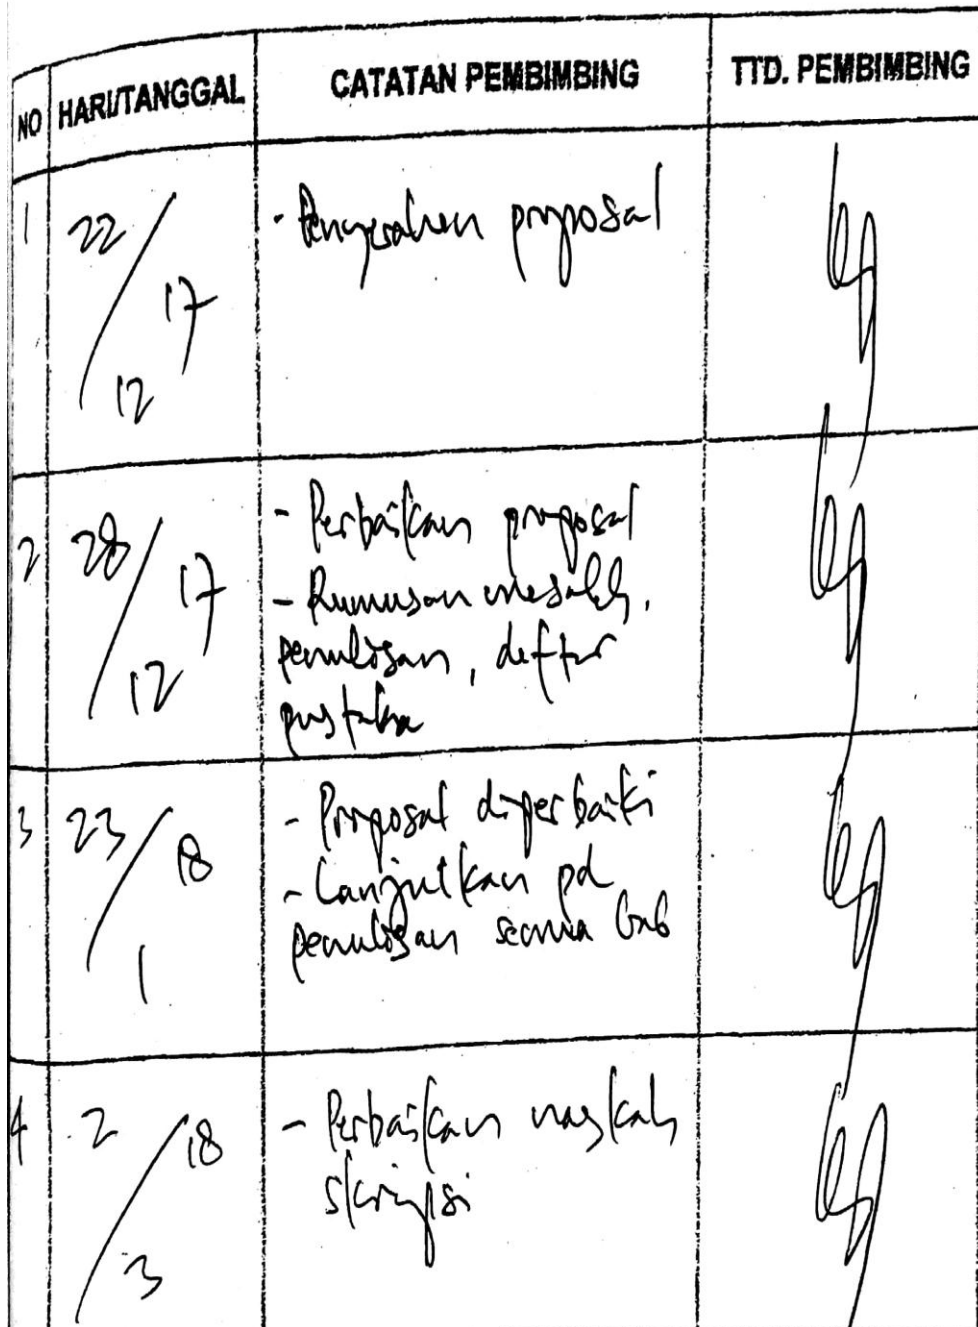 NO HARI/TANGGAL CATATAN PEMBIMBING TTD. PEMBIMBING
1 22/12 17 - Penyerahan proposal
2 28/12 17 - Perbaikan proposal
- Rumusan masalah,
penulisan, daftar
pustaka
3 23/1 18 - Proposal diperbaiki
- Lanjutkan pd
penulisan semua bab
4 2/3 18 - Perbaikan naskah
skripsi